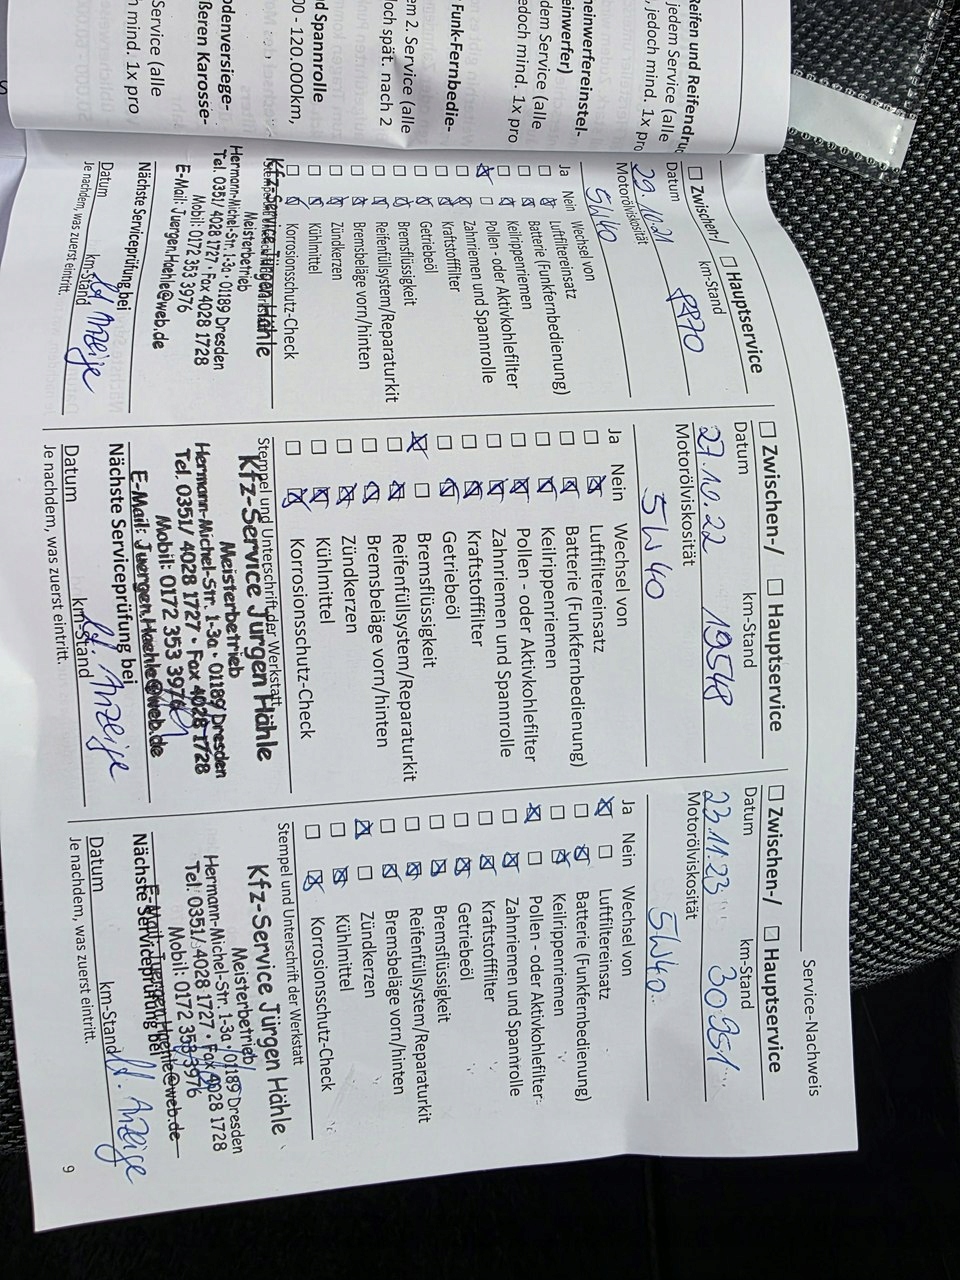 Service-Nachweis
Reifen und Reifendru
jedem Service (alle
, jedoch mind. 1x pro
heinwerfereinstel-
einwerfer)
dem Service (alle
edoch mind. 1x pro
Funk-Fernbedie-
em 2. Service (alle
och spät. nach 2
d Spannrolle
00 - 120.000km,
odenversiege-
ßeren Karosse-
Service (alle
n mind. 1x pro
Zwischen-/ Hauptservice
Datum km-Stand
29.10.21
Motorölviskosität
5W40
Ja Nein Wechsel von
Luftfiltereinsatz
Batterie (Funkfernbedienung)
Keilrippenriemen
Pollen - oder Aktivkohlefilter
Zahnriemen und Spannrolle
Kraftstofffilter
Getriebeöl
Bremsflüssigkeit
Reifenfüllsystem/Reparaturkit
Bremsbeläge vorn/hinten
Zündkerzen
Kühlmittel
Korrosionsschutz-Check
Kfz-Service Jürgen Hähle
Meisterbetrieb
Hermann-Michel-Str. 1-3a · 01189 Dresden
Tel. 0351/ 4028 1727 · Fax 4028 1728
Mobil: 0172 353 3976
E-Mail: Juergen.Haehle@web.de
Nächste Serviceprüfung bei
Datum km-Stand
lt. Anzeige
Je nachdem, was zuerst eintritt.
Zwischen-/ Hauptservice
Datum km-Stand
27.10.22 19548
Motorölviskosität
5W40
Ja Nein Wechsel von
Luftfiltereinsatz
Batterie (Funkfernbedienung)
Keilrippenriemen
Pollen - oder Aktivkohlefilter
Zahnriemen und Spannrolle
Kraftstofffilter
Getriebeöl
Bremsflüssigkeit
Reifenfüllsystem/Reparaturkit
Bremsbeläge vorn/hinten
Zündkerzen
Kühlmittel
Korrosionsschutz-Check
Stempel und Unterschrift der Werkstatt
Kfz-Service Jürgen Hähle
Meisterbetrieb
Hermann-Michel-Str. 1-3a · 01189 Dresden
Tel. 0351/ 4028 1727 · Fax 4028 1728
Mobil: 0172 353 3976
E-Mail: Juergen.Haehle@web.de
Nächste Serviceprüfung bei
Datum km-Stand
lt. Anzeige
Je nachdem, was zuerst eintritt.
Zwischen-/ Hauptservice
Datum km-Stand
23.11.23 30951
Motorölviskosität
5W40
Ja Nein Wechsel von
Luftfiltereinsatz
Batterie (Funkfernbedienung)
Keilrippenriemen
Pollen - oder Aktivkohlefilter
Zahnriemen und Spannrolle
Kraftstofffilter
Getriebeöl
Bremsflüssigkeit
Reifenfüllsystem/Reparaturkit
Bremsbeläge vorn/hinten
Zündkerzen
Kühlmittel
Korrosionsschutz-Check
Stempel und Unterschrift der Werkstatt
Kfz-Service Jürgen Hähle
Meisterbetrieb
Hermann-Michel-Str. 1-3a · 01189 Dresden
Tel. 0351/ 4028 1727 · Fax 4028 1728
Mobil: 0172 353 3976
E-Mail: Juergen.Haehle@web.de
Nächste Serviceprüfung bei
Datum km-Stand
lt. Anzeige
Je nachdem, was zuerst eintritt.
9